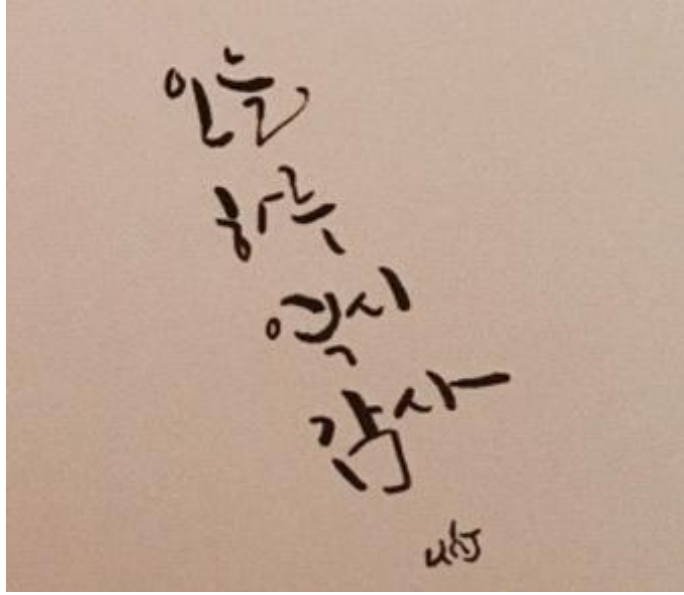 오늘
하루
역시
감사